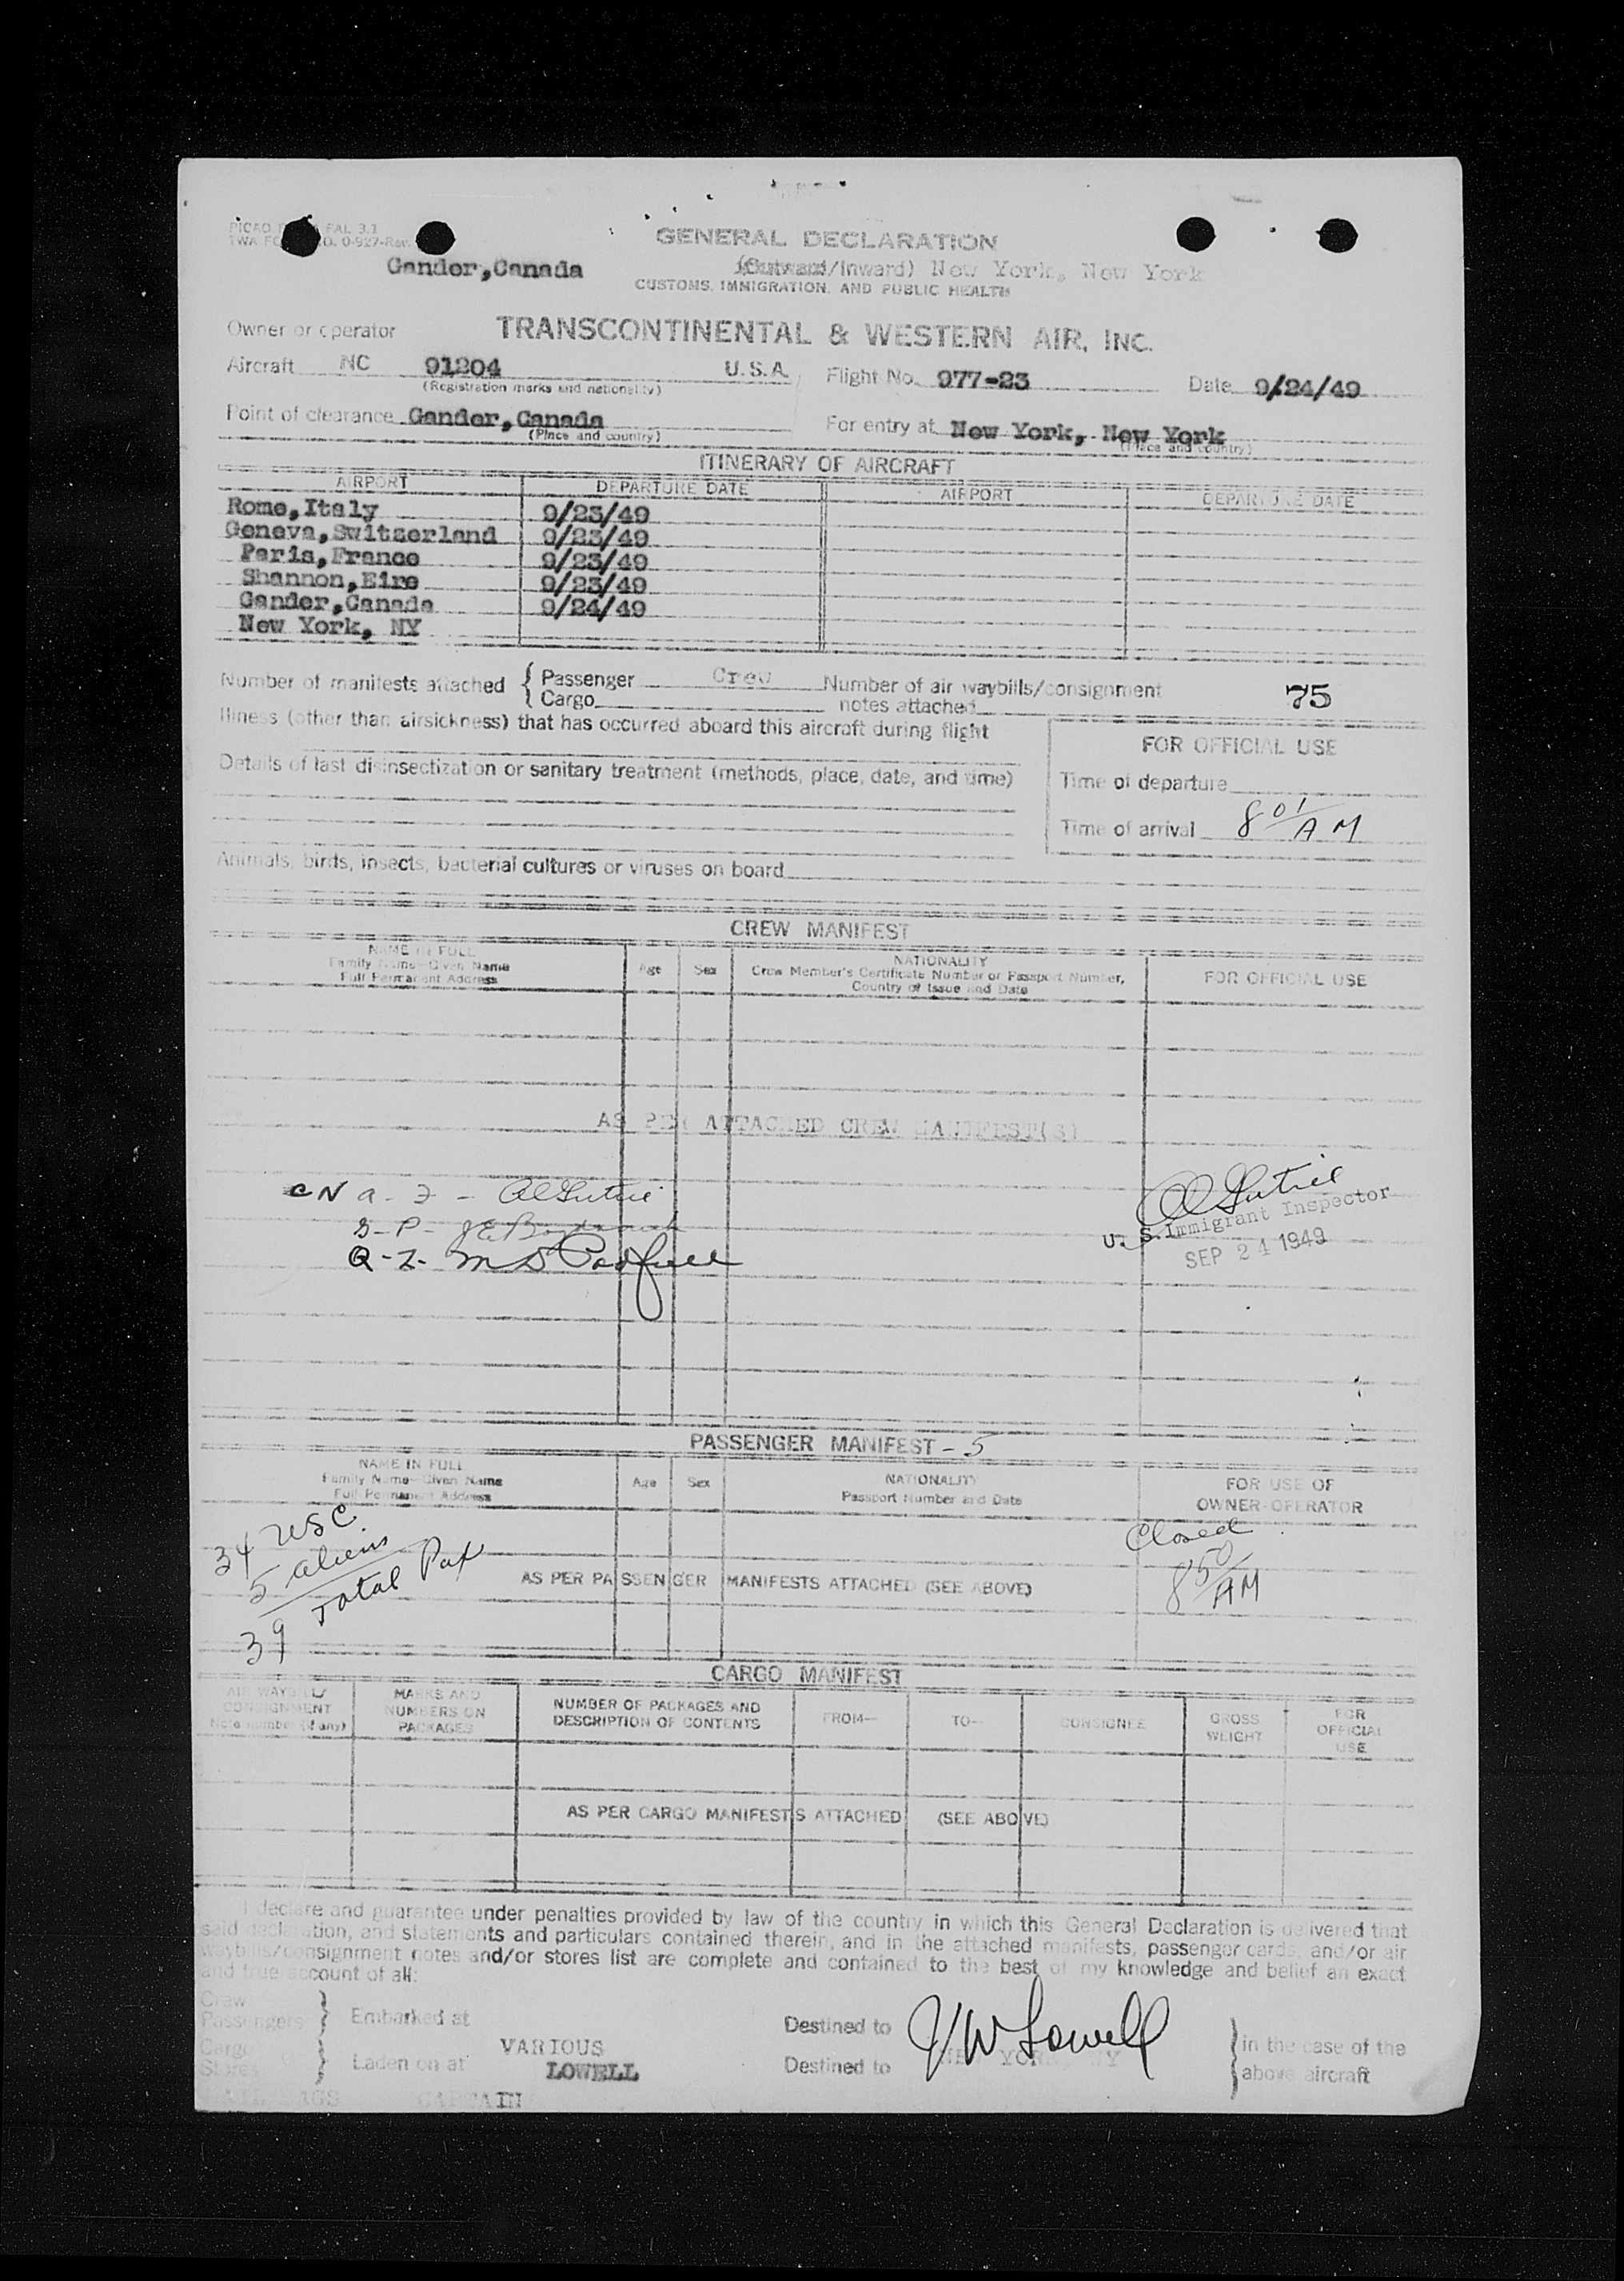 GENERAL DECLARATION
Gander, Canada (Outward/Inward) New York, New York
CUSTOMS, IMMIGRATION, AND PUBLIC HEALTH
Owner or operator TRANSCONTINENTAL & WESTERN AIR, INC.
Aircraft NC 91204 U.S.A. Flight No. 977-23 Date 9/24/49
(Registration marks and nationality)
Point of clearance Gander, Canada For entry at New York, New York
(Place and country) (Place and country)
ITINERARY OF AIRCRAFT
AIRPORT DEPARTURE DATE AIRPORT DEPARTURE DATE
Rome, Italy 9/23/49
Geneva, Switzerland 9/23/49
Paris, France 9/23/49
Shannon, Eire 9/23/49
Gander, Canada 9/24/49
New York, NY
Number of manifests attached { Passenger Crew Number of air waybills/consignment 75
Cargo notes attached
Illness (other than airsickness) that has occurred aboard this aircraft during flight
FOR OFFICIAL USE
Details of last disinsectization or sanitary treatment (methods, place, date, and time)
Time of departure
Time of arrival 8 01/AM
Animals, birds, insects, bacterial cultures or viruses on board
CREW MANIFEST
NAME IN FULL NATIONALITY
Family Name—Given Name Age Sex Crew Member's Certificate Number or Passport Number, FOR OFFICIAL USE
Full Permanent Address Country of Issue and Date
AS PER ATTACHED CREW MANIFEST(S)
U. S. Immigrant Inspector
SEP 24 1949
PASSENGER MANIFEST - 5
NAME IN FULL NATIONALITY FOR USE OF
Family Name—Given Name Age Sex Passport Number and Date OWNER-OPERATOR
Full Permanent Address
34 USC Closed
5 aliens 8 50/AM
39 Total Pax
AS PER PASSENGER MANIFESTS ATTACHED (SEE ABOVE)
CARGO MANIFEST
AIR WAYBILL/ MARKS AND NUMBER OF PACKAGES AND FROM— TO— CONSIGNEE GROSS FOR
CONSIGNMENT NUMBERS ON DESCRIPTION OF CONTENTS WEIGHT OFFICIAL
Note number (if any) PACKAGES USE
AS PER CARGO MANIFESTS ATTACHED (SEE ABOVE)
I declare and guarantee under penalties provided by law of the country in which this General Declaration is delivered that
said declaration, and statements and particulars contained therein, and in the attached manifests, passenger cards, and/or air
waybills/consignment notes and/or stores list are complete and contained to the best of my knowledge and belief an exact
and true account of all:
Crew
Passengers } Embarked at Destined to J W Lowell } in the case of the
Cargo VARIOUS
Stores } Laden on at LOWELL Destined to NEW YORK, NY above aircraft
CAPTAIN